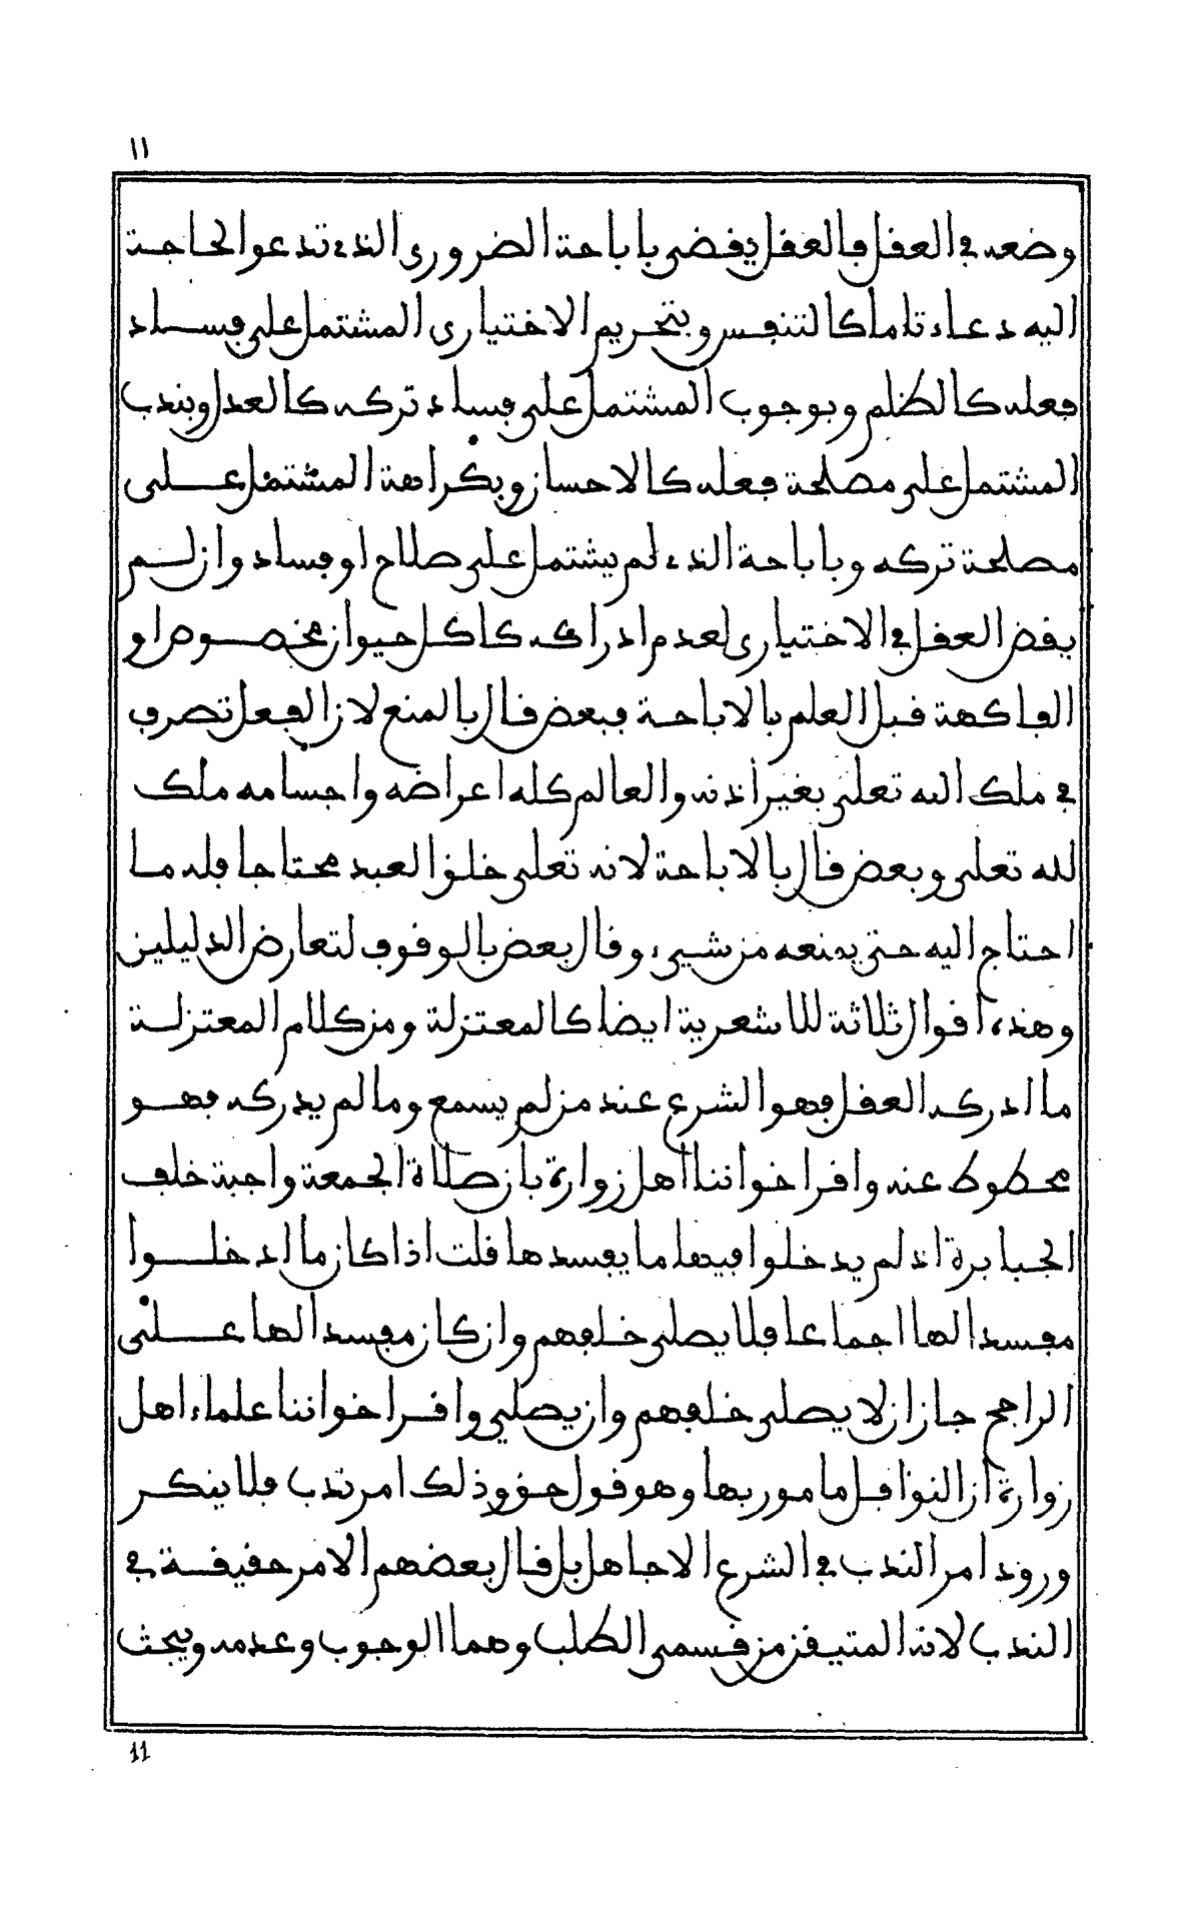 ١١
وضعه في العقل فالعقل يفضي باباحة الضروري الذي تدعوا لحاجة
اليه دعاء تاما كالتنفس وبتحريم الاختياري المشتمل على فساد
فعله كالظلم وبوجوب المشتمل على فساد تركه كالعدل وبندب
المشتمل على مصلحة فعله كالاحسان وبكراهة المشتمل على
مصلحة تركه وباباحة الذي لم يشتمل على صلاح او فساد وان لم
يقض العقل في الاختياري لعدم ادراكه كاكل حيوان مخصوص او
الفاكهة قبل العلم بالاباحة فبعض قال بالمنع لان الفعل تصرف
في ملك الله تعلى بغير اذنه والعالم كله اعراضه واجسامه ملك
لله تعلى وبعض قال بالاباحة لانه تعلى خلق العبد محتاجا فله ما
احتاج اليه حتى يمنعه من شيء وقال بعض بالوقوف لتعارض الدليلين
وهذه اقوال ثلاثة للاشعرية ايضا كالمعتزلة ومن كلام المعتزلة
ما ادركه العقل فهو الشرع عند من لم يسمع وما لم يدركه فهو
محطوط عنه واقر اخواننا اهل زوارة بان صلاة الجمعة واجبة خلف
الجبابرة اذ لم يدخلوا فيها ما يفسدها قلت اذا كان ما ادخلوا
مفسدا لها اجماعا فلا يصلى خلفهم وان كان مفسدا لها على
الراجح جاز ان لا يصلى خلفهم وان يصلي واقر اخواننا علماء اهل
زوارة ان النوافل مامور بها وهو قول حق وذلك امر ندب فلا ينكر
ورود امر الندب في الشرع الا جاهل بل قال بعضهم الامر حقيقة في
الندب لانه المتيقن من قسمي الطلب وهما الوجوب وعدمه ويبحث
11